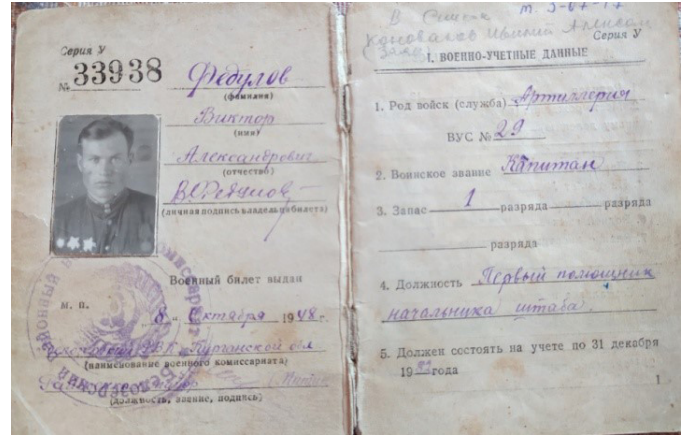 Серия У
№ 33938
Федулов
(фамилия)
Виктор
(имя)
Александрович
(отчество)
(личная подпись владельца билета)
Военный билет выдан
М. п.
„8„ Октября 1948 г.
Курганской обл
(наименование военного комиссариата)
(должность, звание, подпись)
В Списке т. 3-67-17
Коновалов
Серия У
I. ВОЕННО-УЧЕТНЫЕ ДАННЫЕ
1. Род войск (служба) Артиллерия
ВУС № 29
2. Воинское звание Капитан
3. Запас 1 разряда разряда
разряда
4. Должность Первый помощник
начальника штаба.
5. Должен состоять на учете по 31 декабря
19 года
1